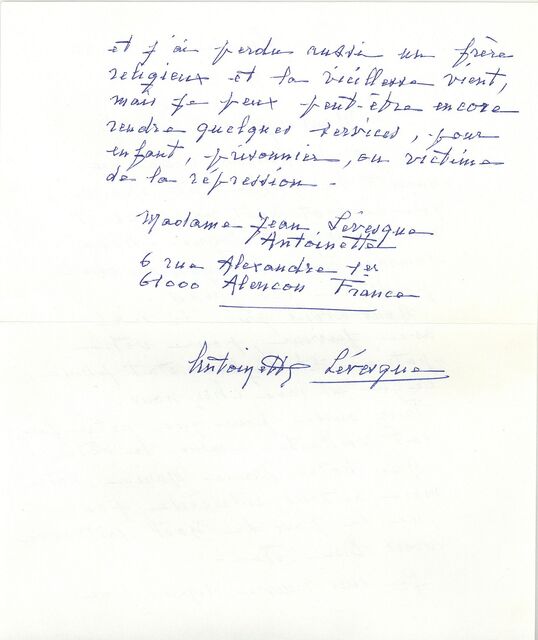 et j'ai perdu aussi un frère
religieux et la vieillesse vient,
mais je peux peut-être encore
rendre quelques services, pour
enfant, prisonnier, ou victime
de la répression.
Madame Jean Lévesque
Antoinette
6 rue Alexandre 1er
61000 Alencon France
Antoinette Lévesque